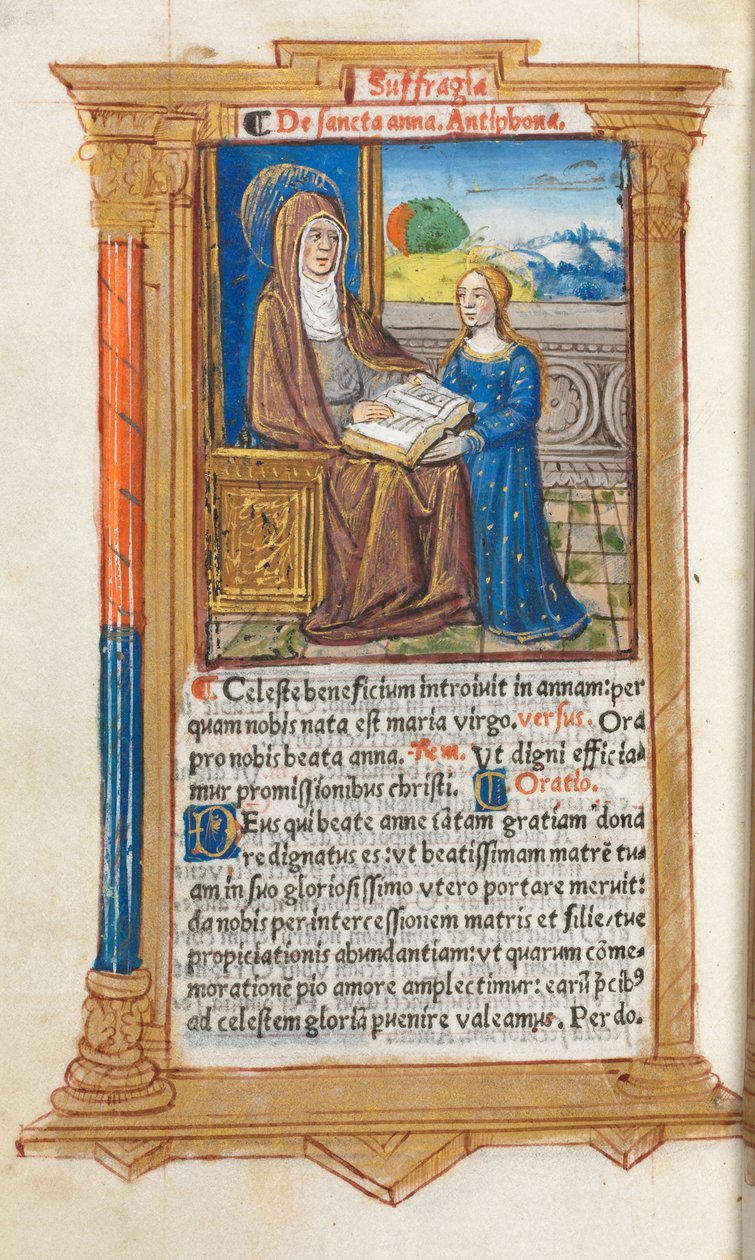 Suffragia
¶ De sancta anna. Antiphona.
¶ Celeste beneficium introiuit in annam: per
quam nobis nata est maria virgo. versus. Ora
pro nobis beata anna. Rem. Vt digni efficia-
mur promissionibus christi. ¶ Oratio.
DEus qui beate anne tātam gratiam dona
re dignatus es: vt beatissimam matrē tu-
am in suo gloriosissimo vtero portare meruit:
da nobis per intercessionem matris et filie tue
propiciationis abundantiam: vt quarum cōme-
morationē pio amore amplectimur: earū p̄cibꝰ
ad celestem gloriā ꝑuenire valeamus. Per do.